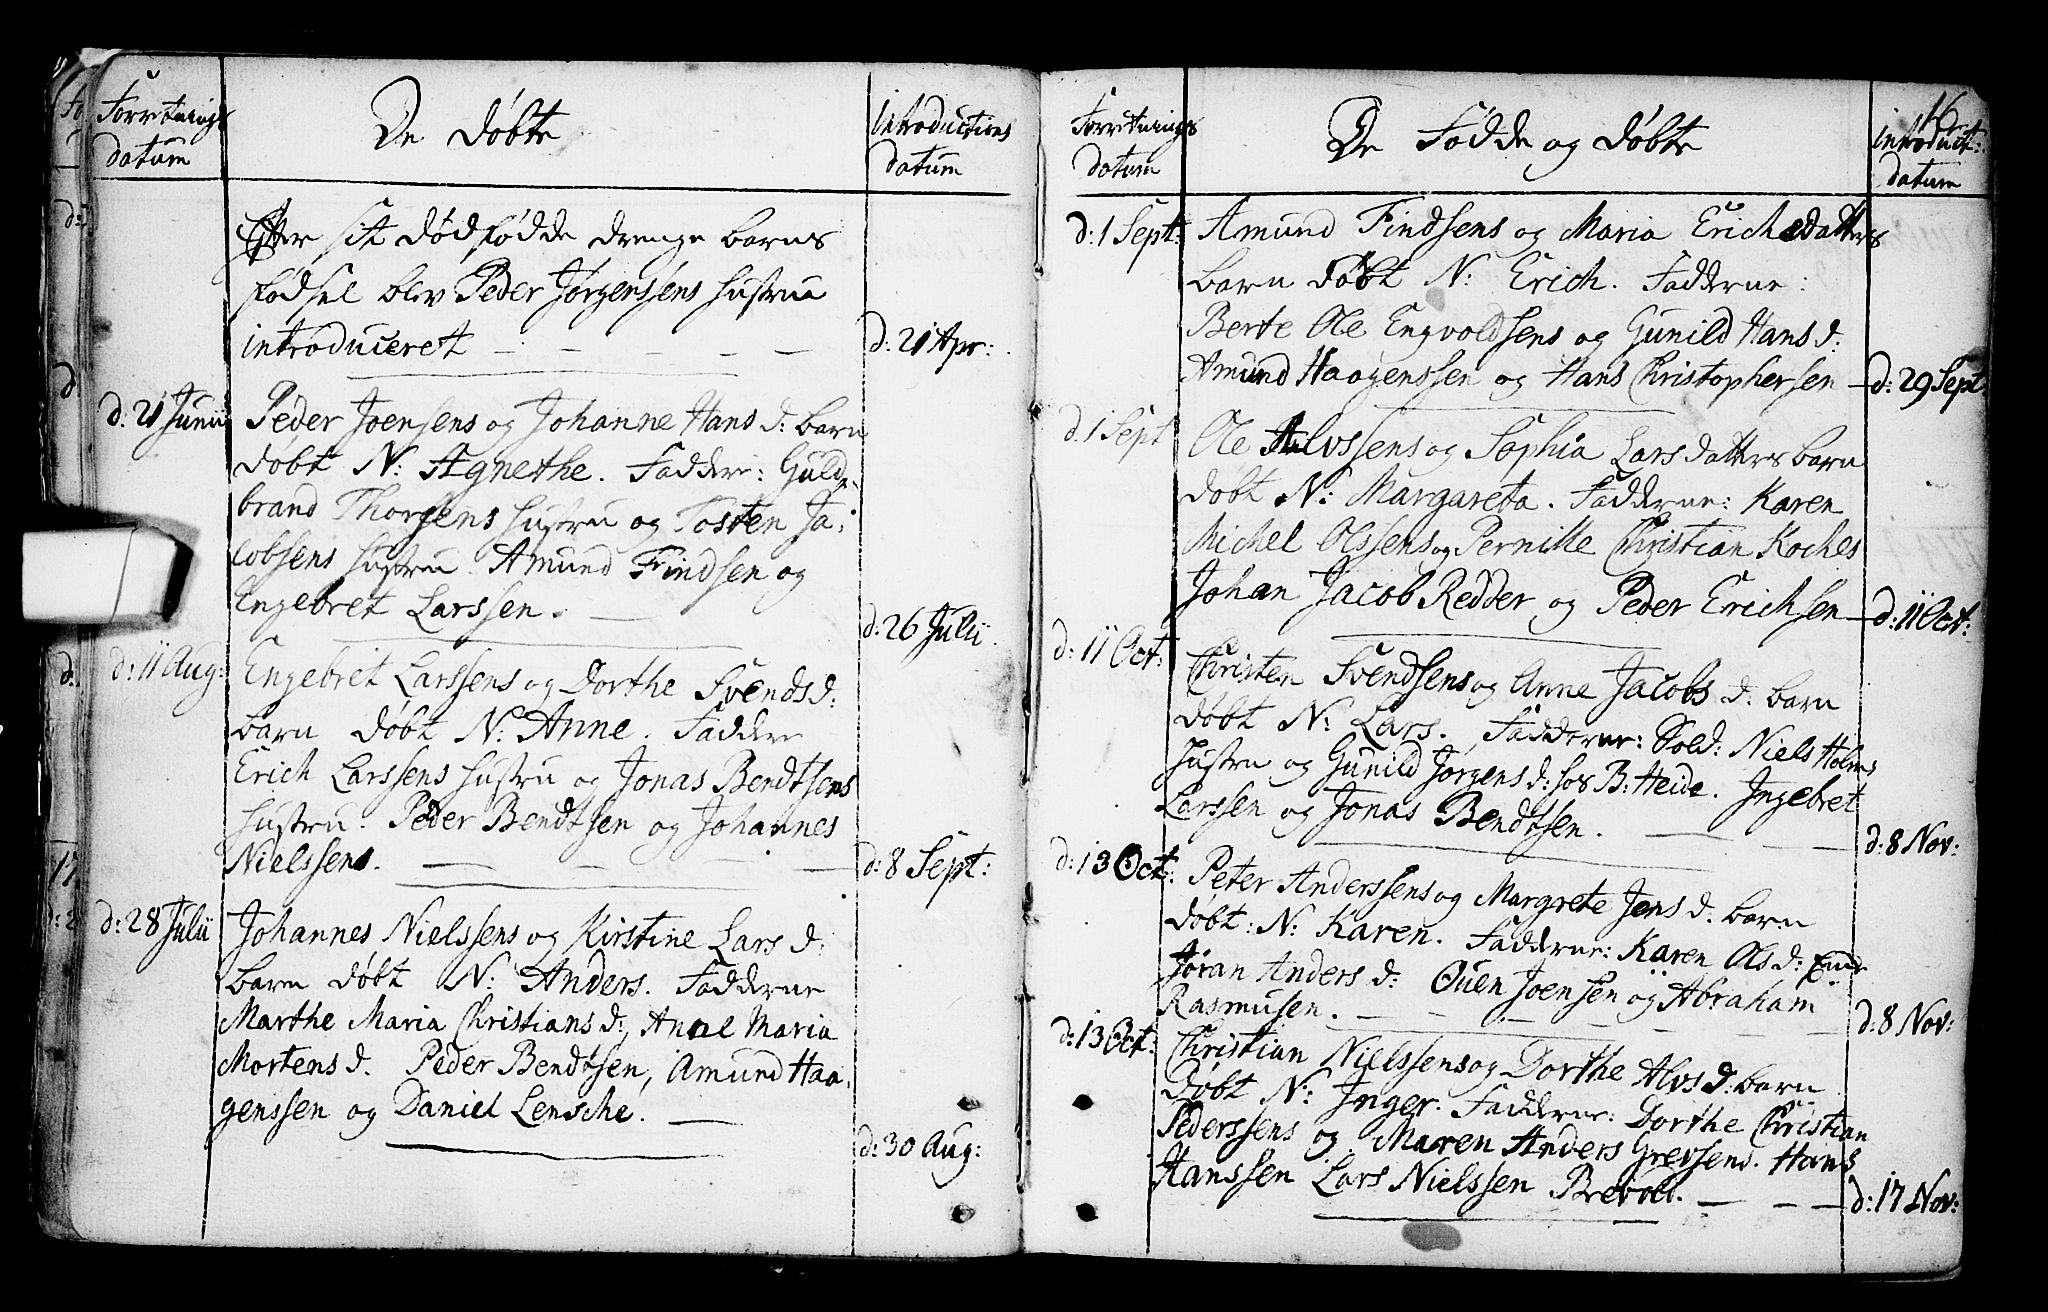 Forretnings
datum
De Døbte
introductions
datum
Efter sit dødfødde drenge barns
fødsel blev Peder Jørgenssens hustrue
introduceret — — — — —
d: 21 Apr:
d. 21 Junii
Peder Joensens og Johanne Hans d: barn
døbt N: Agnethe. Faddere: Guld-
brand Thorsens hustru og Tosten Ja-
cobsens hustru. Amund Findsen og
Engebret Larssen. —
d: 26 Julii
d: 11 Aug:
Engebret Larssens og Dorthe Svends d:
barn døbt N: Anne. Faddere
Erich Larssens hustru og Jonas Bendtsens
hustru. Peder Bendtsen og Johannes
Nielssens. — — — —
d: 8 Sept:
d: 28 Julii
Johannes Nielssens og Kirstine Lars d:
barn døbt N: Anders. Fadderne
Marthe Maria Christians d:, Anne Maria
Mortens d. Peder Bendtsen, Amund Haa-
genssen og Daniel Lensche. —
d: 30 Aug:
16
Forretnings
datum
De Fødde og Døbte
introduct:
datum
d: 1 Sept:
Amund Findsens og Maria Erichsdatters
barn døbt N: Erich. Fadderne:
Berte Ole Engvoldsens og Gunild Hans d:
Amund Haagenssen og Hans Christophersen —
d: 29 Sept:
d. 1 Sept
Ole Alvssens og Sophia Lars datters barn
døbt N: Margareta. Fadderne: Karen
Michel Olssens og Pernille Christian Koches
Johan Jacob Redder og Peder Erichsen —
d: 11 Oct:
d: 11 Oct:
Christen Svendsens og Anne Jacobs d: barn
døbt N: Lars. Fadderne: Sold: Niels Holms
hustru og Gunild Jørgens d: hos B: Heide. Ingebret
Larssen og Jonas Bendtsen. — — —
d: 8 Nov:
d: 13 Oct:
Peter Anderssens og Margrete Jens d. barn
døbt: N: Karen. Fadderne: Karen Ols d:
Jøran Anders d: Ouen Joensen og Abraham
Rasmusen. — — — — — —
d: 8 Nov:
d: 13 Oct:
Christian Nielssens og Dorthe Alvs d: barn
døbt N: Inger. Fadderne: Dorthe Christian
Pederssens og Maren Anders Grevsens. Hans
Hanssen Lars Nielssen Brevold. — — —
d: 17 Nov: